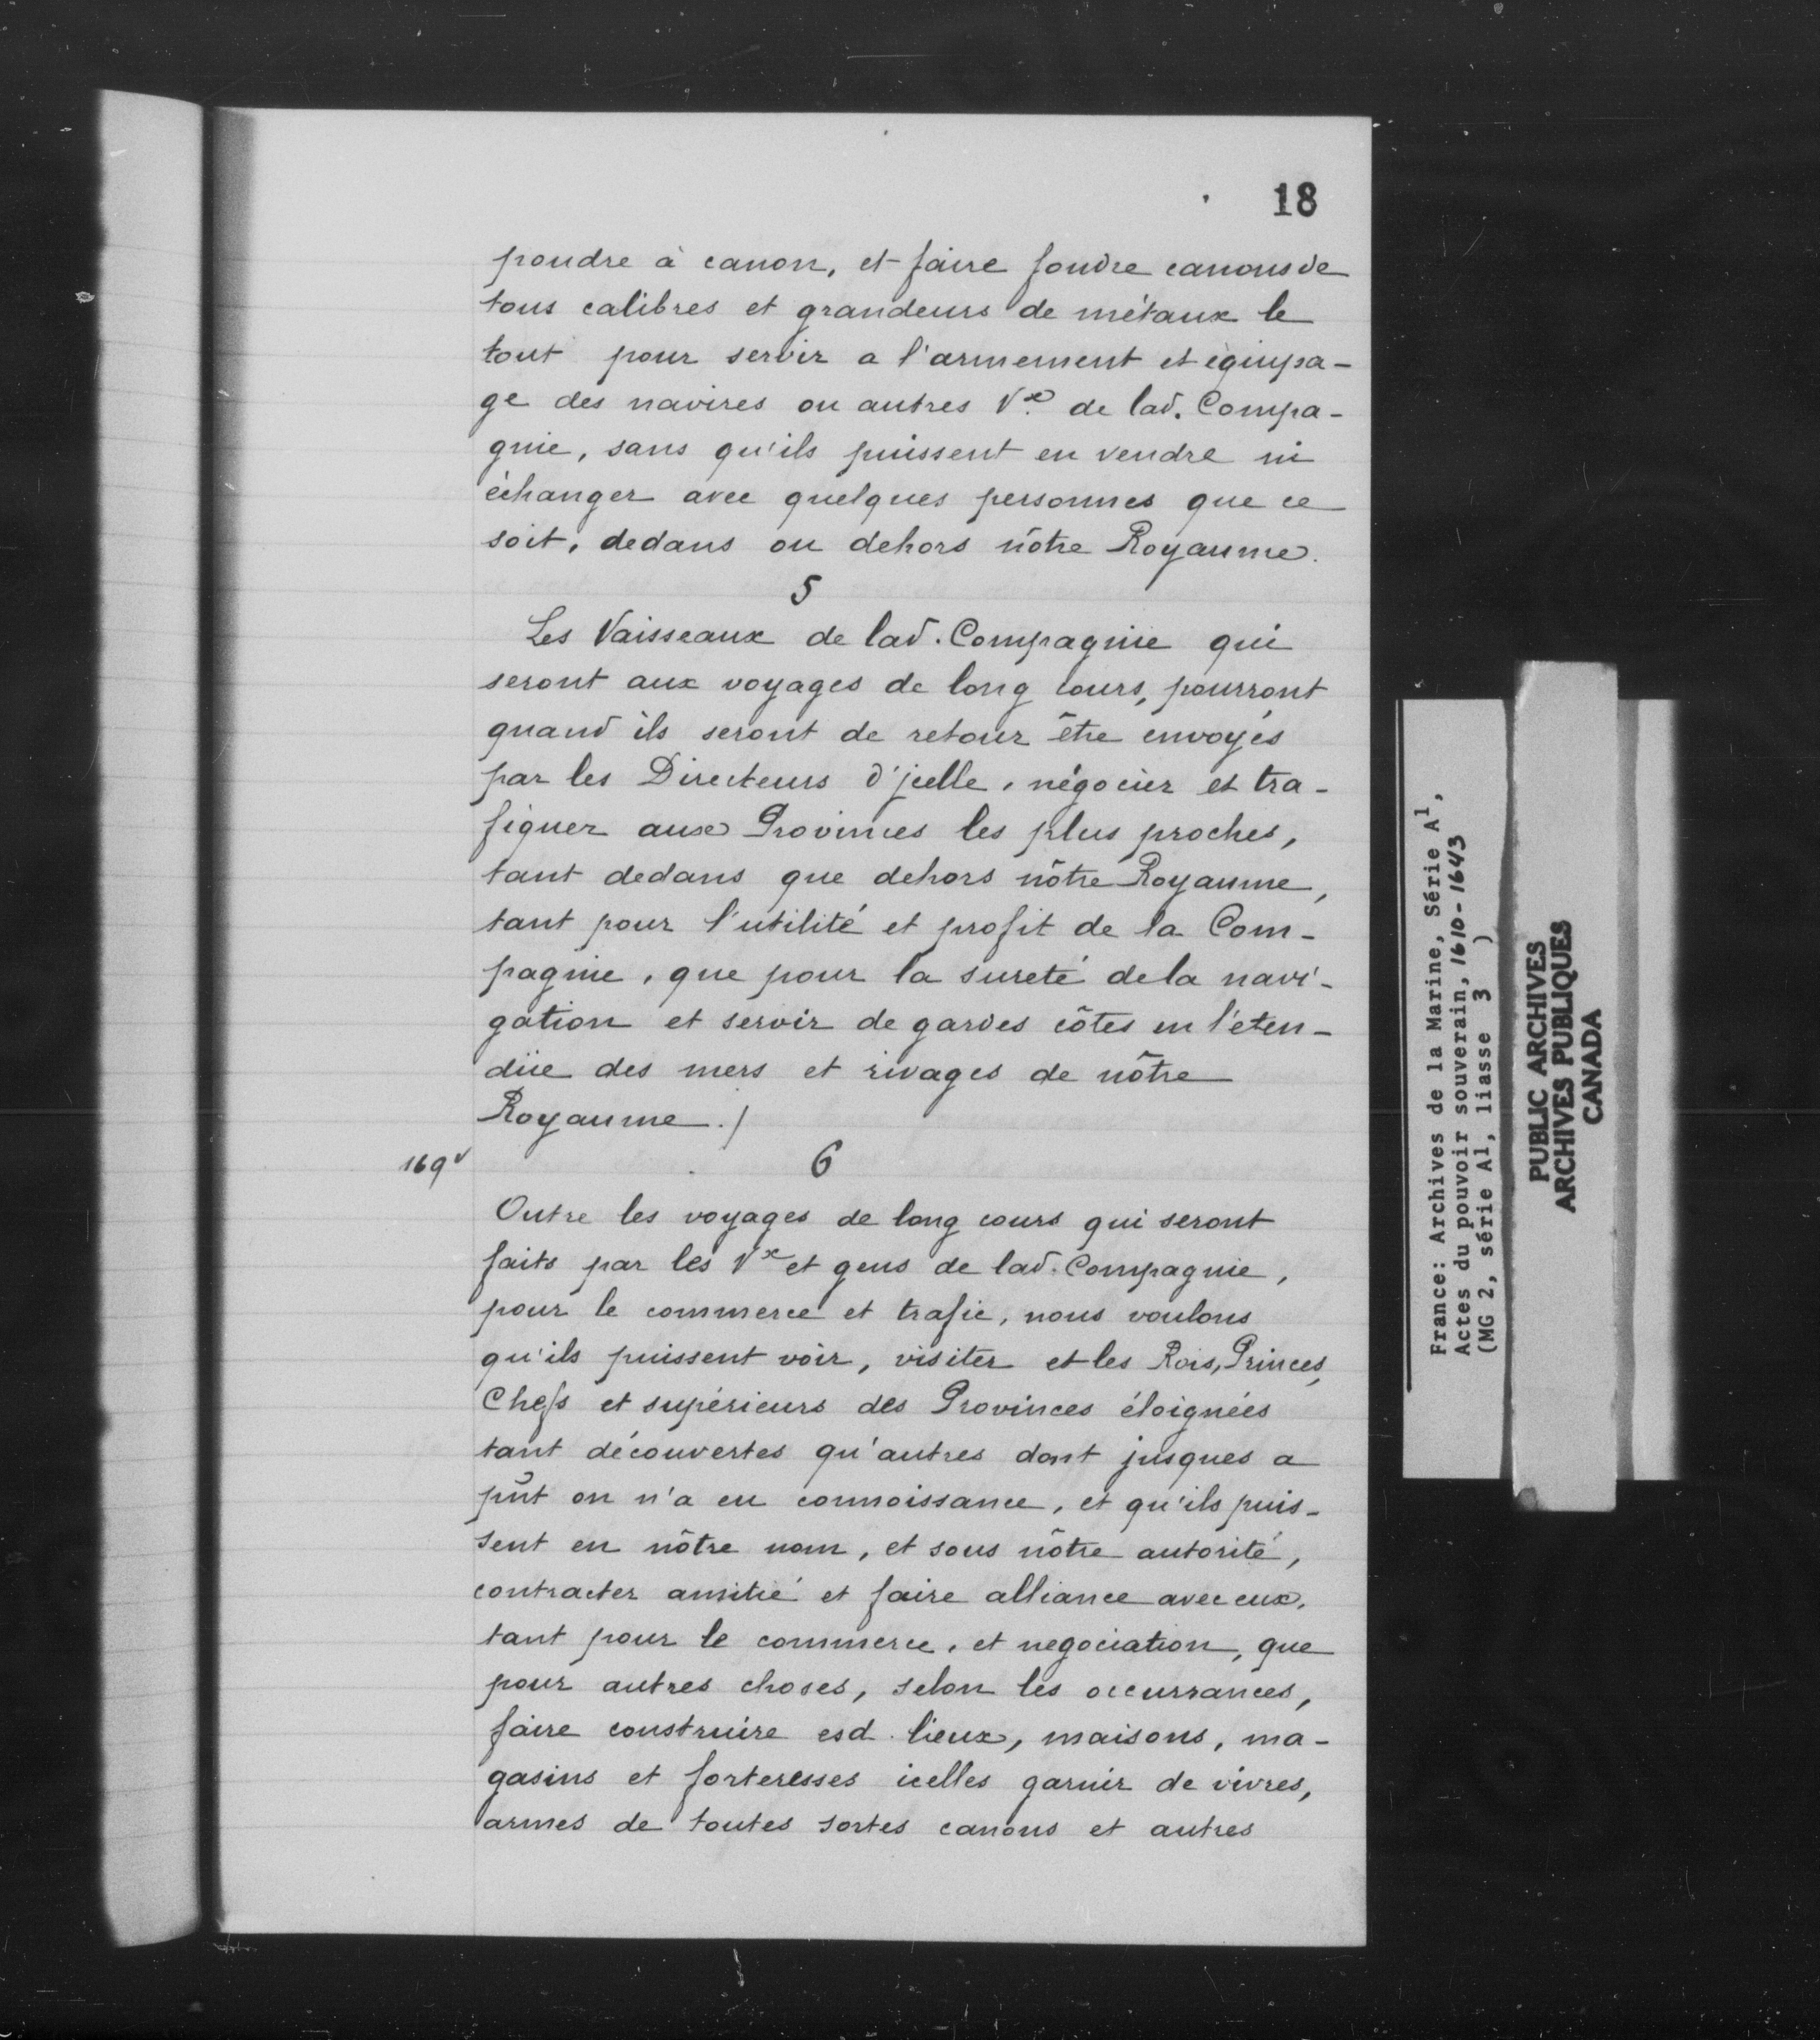 18
poudre à canon, et faire fondre canons de
tous calibres et grandeurs de métaux le
tout pour servir a l'armement et équipa-
ge des navires ou autres Vx de lad. Compa-
gnie, sans qu'ils puissent en vendre ni
échanger avec quelques personnes que ce
soit, dedans ou dehors nôtre Royaume.
5
Les Vaisseaux de lad. Compagnie qui
seront aux voyages de long cours, pourront
quand ils seront de retour être envoyés
par les Directeurs d'jcelle, négocier et tra-
fiquer aux Provinces les plus proches,
tant dedans que dehors nôtre Royaume,
tant pour l'utilité et profit de la Com-
pagnie, que pour la sureté de la navi-
gation et servir de gardes côtes en l'éten-
düe des mers et rivages de nôtre
Royaume./
169v
6
Outre les voyages de long cours qui seront
faits par les Vx et gens de lad. Compagnie,
pour le commerce et trafic, nous voulons
qu'ils puissent voir, visiter et les Rois, Princes,
Chefs et supérieurs des Provinces éloignées
tant découvertes qu'autres dont jusques a
pñt on n'a eu connoissance, et qu'ils puis-
sent en nôtre nom, et sous nôtre autorité,
contracter amitié et faire alliance avec eux,
tant pour le commerce, et negociation, que
pour autres choses, selon les occurrances,
faire construire esd. lieux, maisons, ma-
gasins et forteresses icelles garnir de vivres,
armes de toutes sortes canons et autres
France: Archives de la Marine, Série A1,
Actes du pouvoir souverain, 1610-1643
(MG 2, série A1, liasse 3 )
PUBLIC ARCHIVES
ARCHIVES PUBLIQUES
CANADA